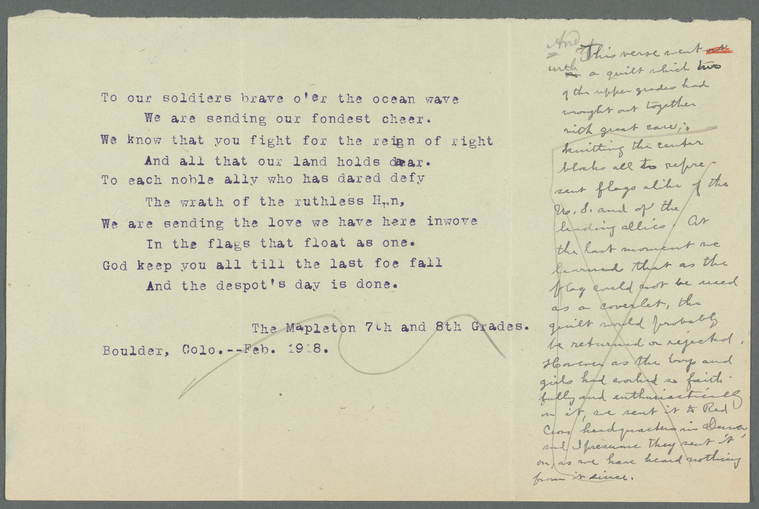 To our soldiers brave o'er the ocean wave
We are sending our fondest cheer.
We know that you fight for the reign of right
And all that our land holds dear.
To each noble ally who has dared defy
The wrath of the ruthless Hun,
We are sending the love we have here inwove
In the flags that float as one.
God keep you all till the last foe fall
And the despot's day is done.
The Mapleton 7th and 8th Grades.
Boulder, Colo.--Feb. 1918.
And
This verse went
with a quilt which two
of the upper grades had
wrought out together
with great care,
knitting the center
blocks all to repre-
sent flags alike of the
U. S. and of the
leading allies. At
the last moment we
learned that as the
flag could not be used
as a coverlet, the
quilt would probably
be returned or rejected.
However as the boys and
girls had worked so faith-
fully and enthusiastically
on it, we sent it to Red
Cross headquarters in Denver
and I presume they sent it
on, as we have heard nothing
from it since.